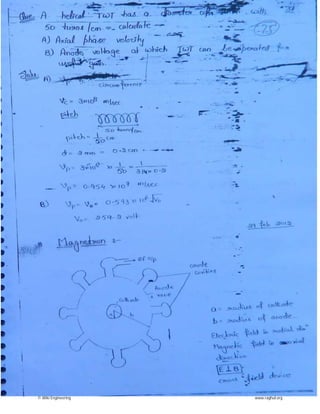 Que. A helical TWT has a diameter of with
50 turns/cm calculate
A) Axial phase velocity
B) Anode voltage at which TWT can be operated for
useful gain.
Soln. A)
circumference
Vc = 3×10⁸ m/sec
pitch
50 turns/cm
pitch = 1/50 cm
d = 2 mm = 0.2 cm
Vp = 3×10⁸ × 1/50 × 1/3.14×0.2
Vp = 0.954 × 10⁷ m/sec
B) Vp = Vo = 0.593 × 10⁶ √Vo
Vo = 259.2 volt
Magnetron :-
RF o/p
cavities
Anode
Cathode
a
b
a = radius of cathode
b = radius of anode
Electric field is radial
Magnetic field is axial
direction
E⊥B
cross field device
© Wiki Engineering
www.raghul.org